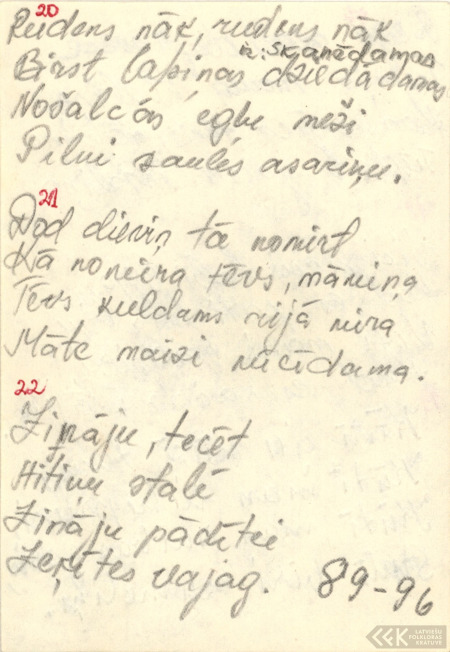 20
Rudens nāk, rudens nāk
ir: skanēdamas
Birst lapiņas dziedādamas
Nošalcās egļu meži
Pilni saulēs asariņu.
21
Dod dieviņ tā nomirt
Kā nomira tēvs, māmiņa
Tēvs kuldams rijā mira
Māte maizi mīcīdama.
22
Zināju, tecēt
stalē
Zināju pādītei
Zeķītes vajag. 89-96
LFK LATVIEŠU FOLKLORAS KRĀTUVE